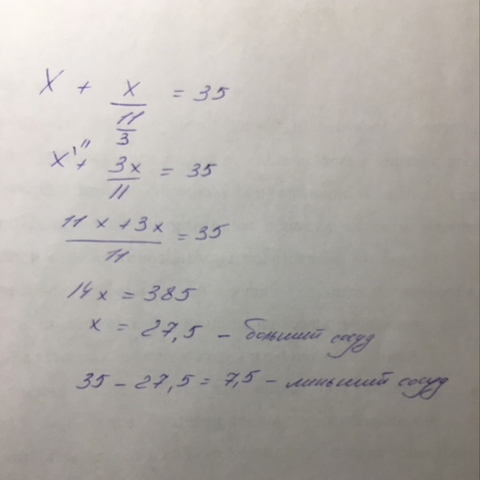 x + x/(11/3) = 35
x\11 + 3x/11 = 35
(11x + 3x)/11 = 35
14x = 385
x = 27,5 - больший сосуд
35 - 27,5 = 7,5 - меньший сосуд